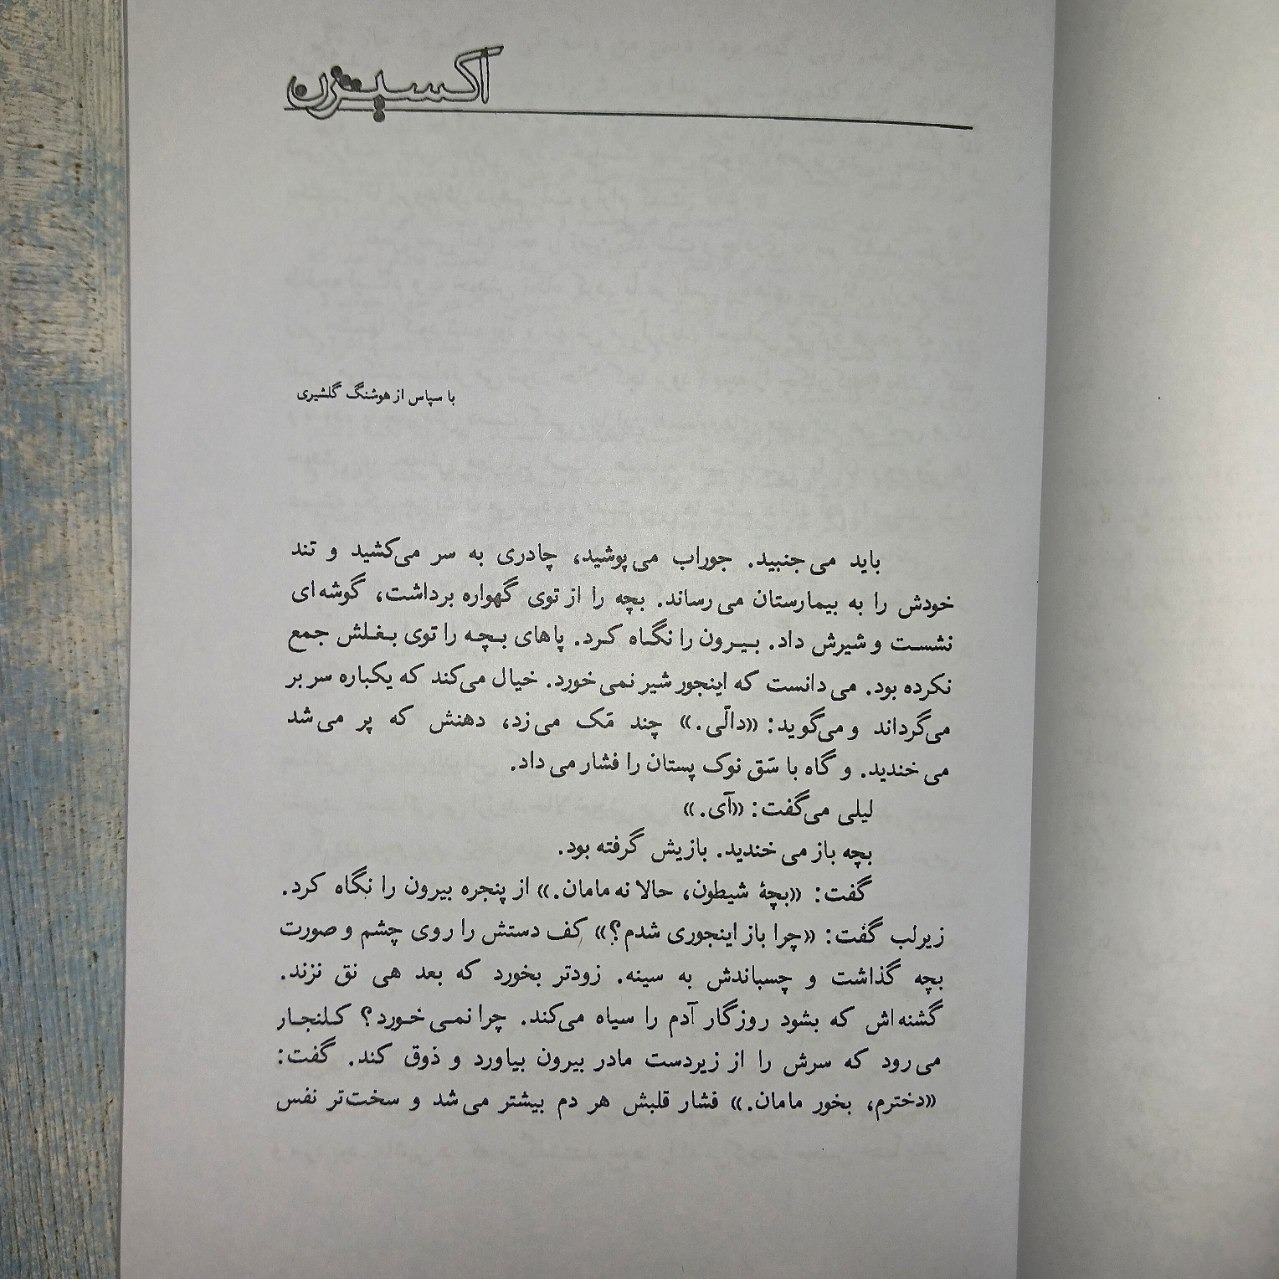 اکسیژن
با سپاس از هوشنگ گلشیری
باید می‌جنبید. جوراب می‌پوشید، چادری به سر می‌کشید و تند
خودش را به بیمارستان می‌رساند. بچه را از توی گهواره برداشت، گوشه‌ای
نشست و شیرش داد. بیرون را نگاه کرد. پاهای بچه را توی بغلش جمع
نکرده بود. می‌دانست که اینجور شیر نمی‌خورد. خیال می‌کند که یکباره سر بر
می‌گرداند و می‌گوید: «دالّی.» چند مَک می‌زد، دهنش که پر می‌شد
می‌خندید. و گاه با سَق نوک پستان را فشار می‌داد.
لیلی می‌گفت: «آی.»
بچه باز می‌خندید. بازیش گرفته بود.
گفت: «بچهٔ شیطون، حالا نه مامان.» از پنجره بیرون را نگاه کرد.
زیرلب گفت: «چرا باز اینجوری شدم؟» کف دستش را روی چشم و صورت
بچه گذاشت و چسباندش به سینه. زودتر بخورد که بعد هی نق نزند.
گشنه‌اش که بشود روزگار آدم را سیاه می‌کند. چرا نمی‌خورد؟ کلنجار
می‌رود که سرش را از زیردست مادر بیرون بیاورد و ذوق کند. گفت:
«دخترم، بخور مامان.» فشار قلبش هر دم بیشتر می‌شد و سخت‌تر نفس